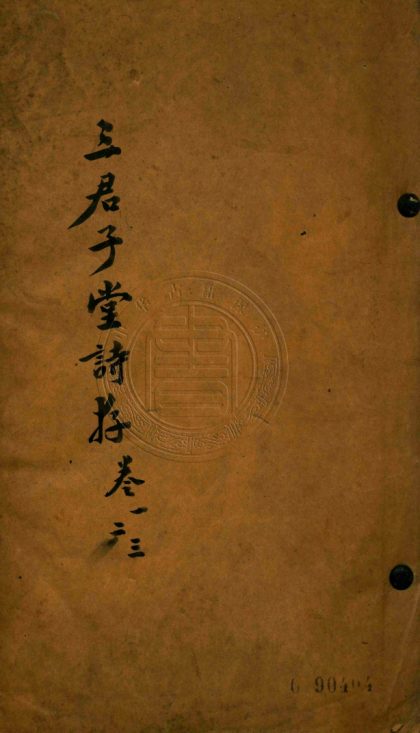 三君子堂詩存卷一二三
690404